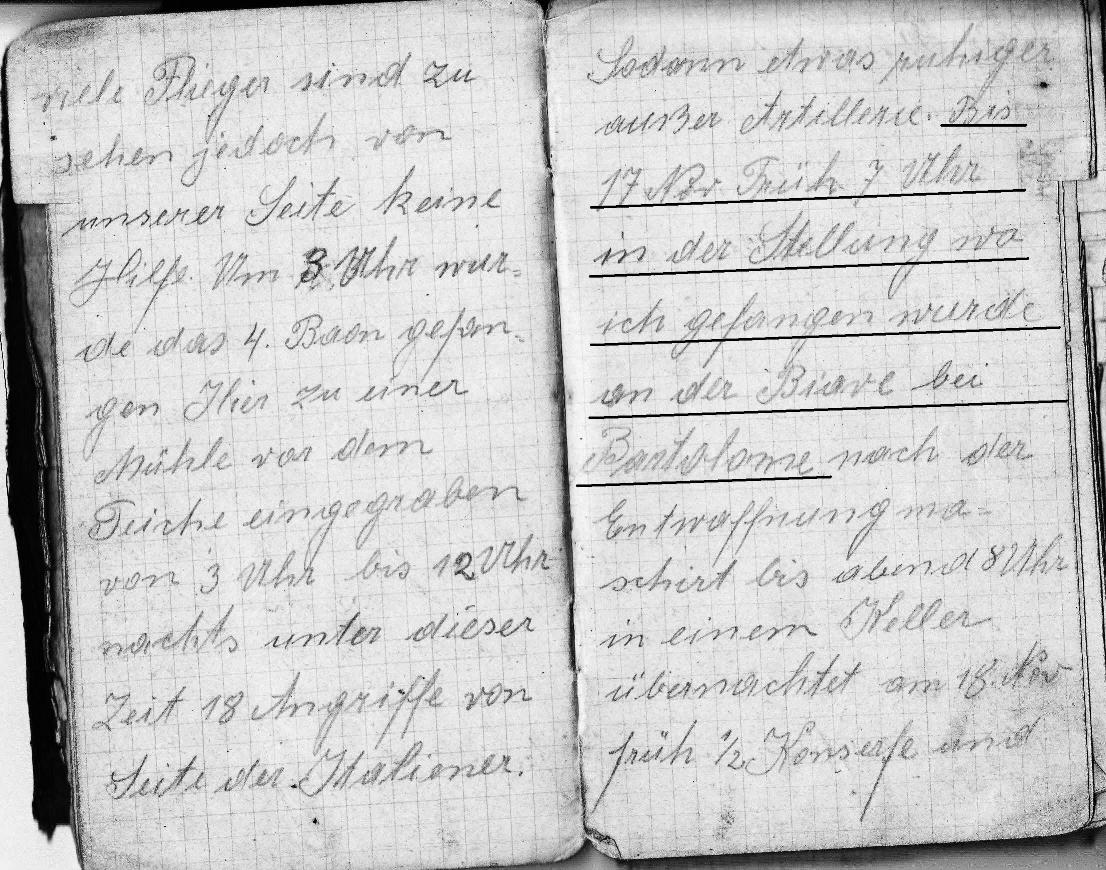 viele Flieger sind zu
sehen jedoch von
unserer Seite keine
Hilfe. Um 3 Uhr wur=
de das 4. Baon gefan=
gen Hier zu einer
Mühle vor dem
Teiche eingegraben
von 3 Uhr bis 12 Uhr
nachts unter dieser
Zeit 18 Angriffe von
Seite der Italiener.
Sodann etwas ruhiger
außer Artillerie. Bis
17 Nov Früh 7 Uhr
in der Stellung wo
ich gefangen wurde
an der Biave bei
Bartolome nach der
Entwaffnung ma=
schirt bis abend 8 Uhr
in einem Keller
übernachtet am 18. Nov
früh ½ Konserfe und